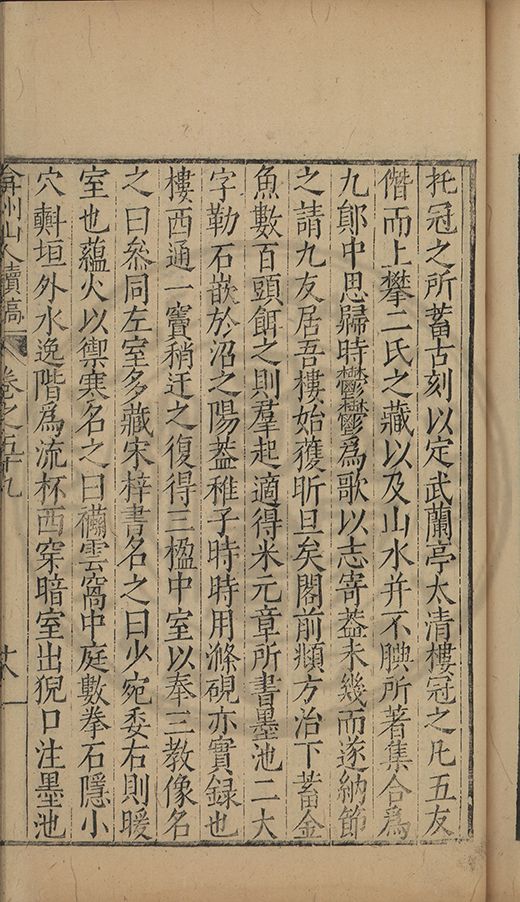 托冠之所蓄古刻以定武蘭亭太清樓冠之凡五友
僭而上攀二氏之藏以及山水并不腆所著集合爲
九郎中思歸時鬱鬱爲歌以志寄葢未幾而遂納節
之請九友居吾樓始獲昕旦矣閣前頫方沼下蓄金
魚數百頭餌之則羣起適得米元章所書墨池二大
字勒石嵌於沼之陽葢稚子時時用滌硯亦實録也
樓西通一竇稍迂之復得三楹中室以奉三教像名
之曰叅同左室多藏宋梓書名之曰少宛委右則暖
室也蘊火以禦寒名之曰襽雲窩中庭數拳石隱小
穴㪺垣外水逸階爲流杯西穿暗室出猊口注墨池
弇州山人續稿 卷之五十九 十八